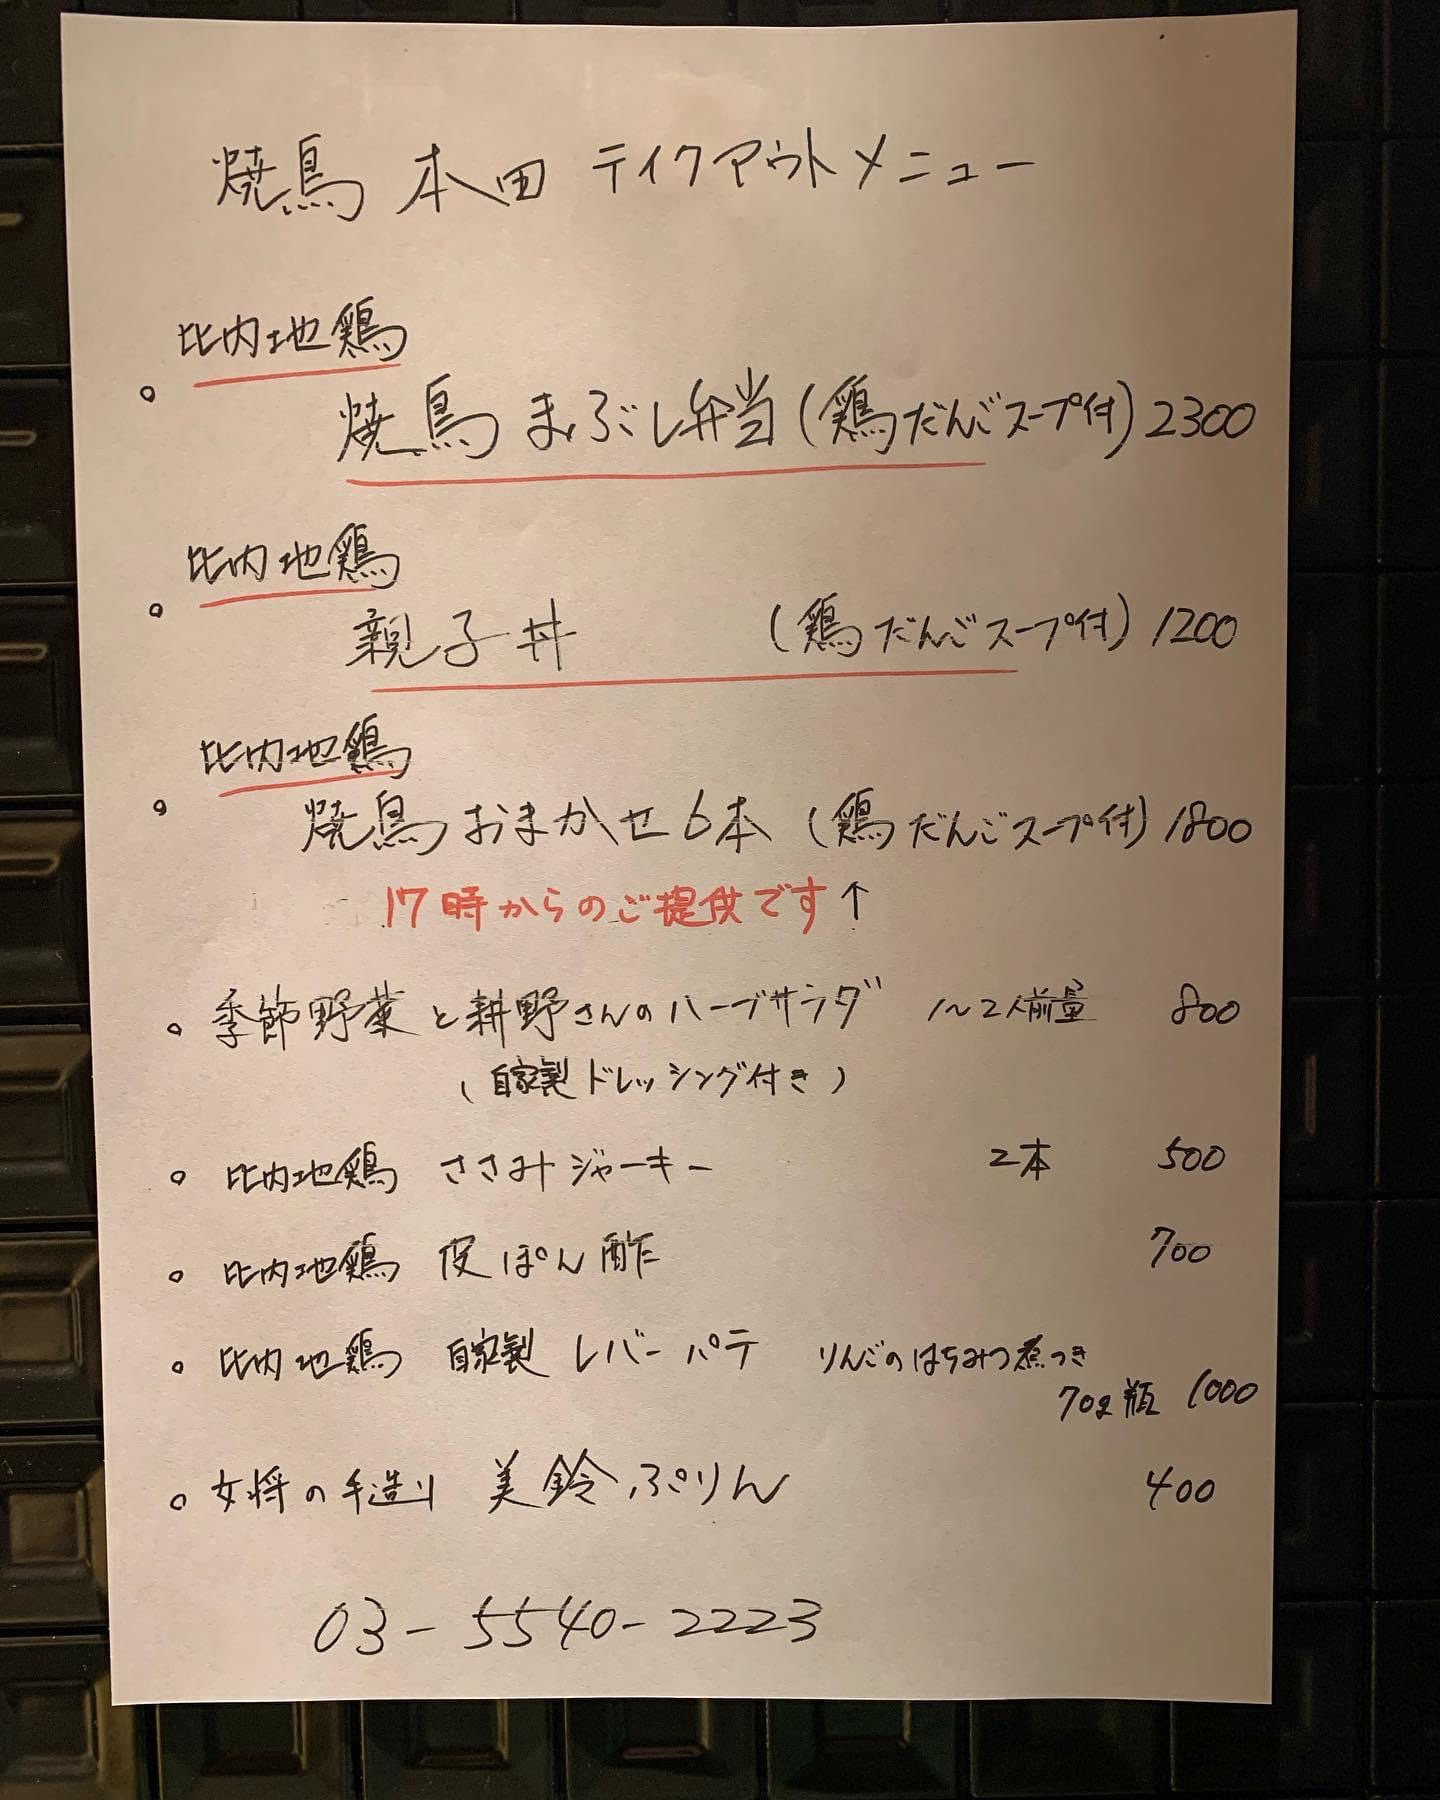 焼鳥 本田 テイクアウトメニュー
比内地鶏
。焼鳥まぶし弁当(鶏だんごスープ付)2300
比内地鶏
。親子丼 (鶏だんごスープ付)1200
比内地鶏
。焼鳥おまかせ6本(鶏だんごスープ付)1800
17時からのご提供です↑
。季節野菜と耕野さんのハーブサラダ 1〜2人前量 800
(自家製ドレッシング付き)
。比内地鶏 ささみジャーキー 2本 500
。比内地鶏 皮ぽん酢 700
。比内地鶏 自家製 レバーパテ りんごのはちみつ煮つき
70g瓶 1000
。女将の手造り 美鈴ぷりん 400
03-5540-2223